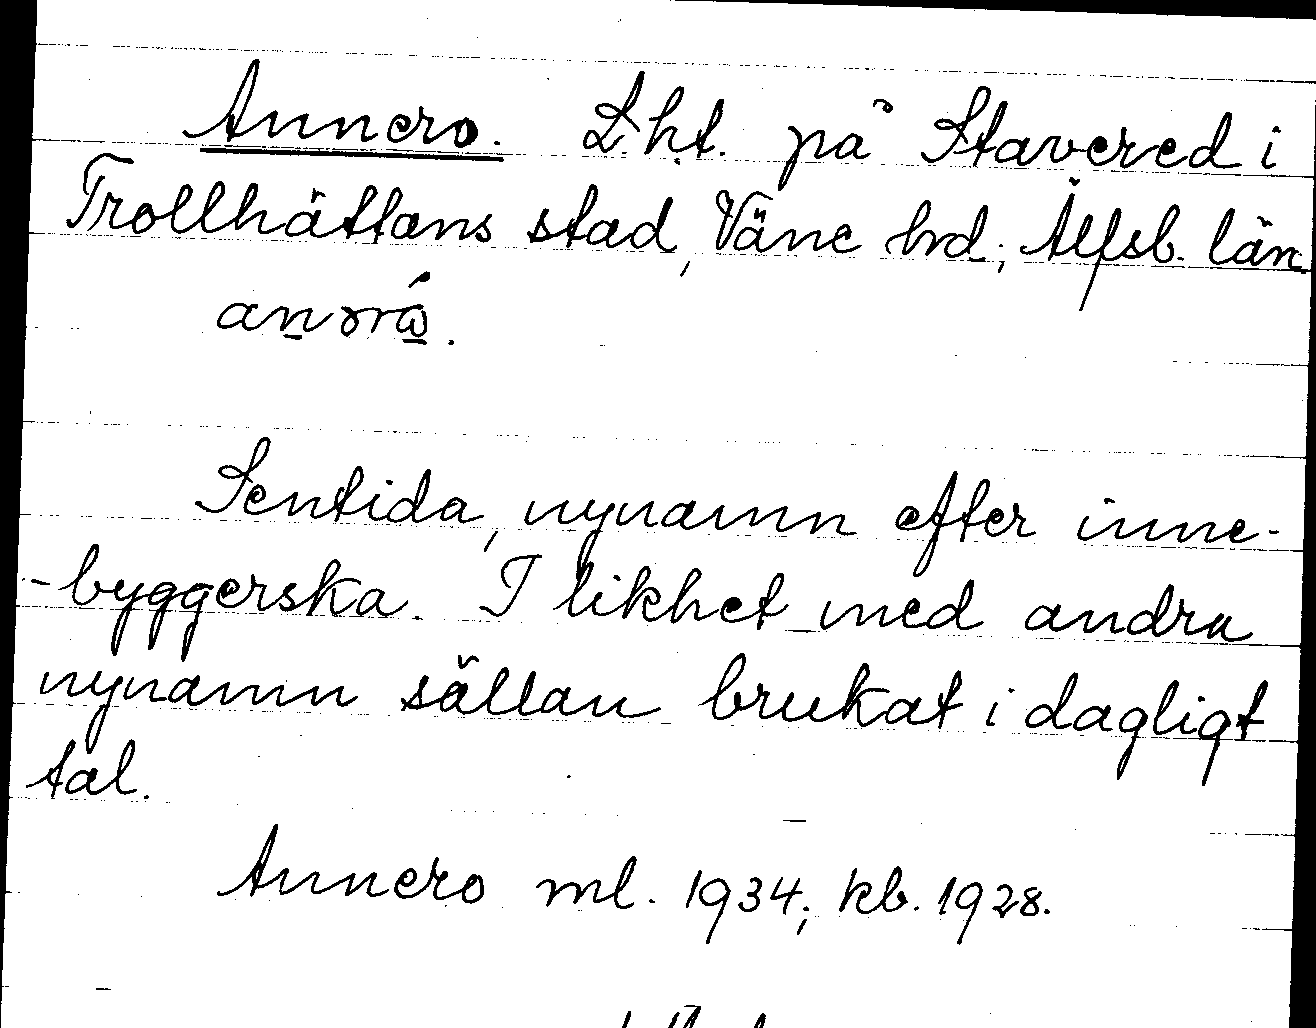 Annero. Lht. på Stavered i
Trollhättans stad, Väne hrd; Älfsb. län
Sentida, nynamn efter inne-
-byggerska. I likhet med andra
nynamn sällan brukat i dagligt
tal.
Annero ml. 1934; kb. 1928.